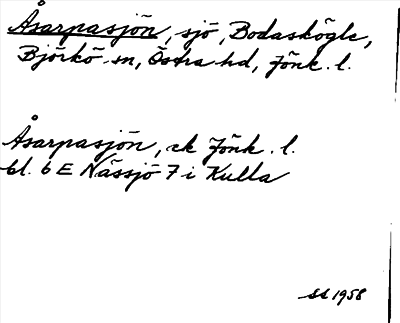 Åsarpasjön, sjö, Bodaskögle,
Björkö sn, Östra hd, Jönk. l.
Åsarpasjön, ek Jönk. l.
bl. 6 E Nässjö 7 i Kulla
SS 1958